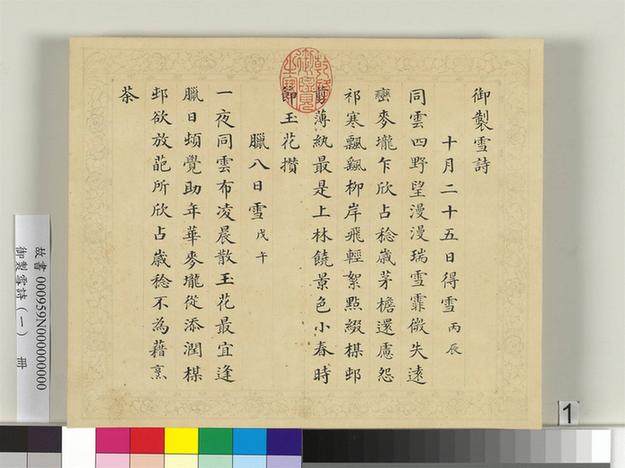 御製雪詩
十月二十五日得雪 丙辰
同雲四野望漫漫瑞雪霏微失遠
巒麥壠乍欣占稔歲茅檐還慮怨
祁寒飄颻柳岸飛輕絮點綴楳邨
薄紈最是上林饒景色小春時
節玉花攢
臘八日雪 戊午
一夜同雲布凌晨散玉花最宜逢
臘日頓覺助年華麥壠從添潤楳
邨欲放葩所欣占歲稔不為藉烹
茶
故書 000959N000000000
御製雪詩(一) 冊
1